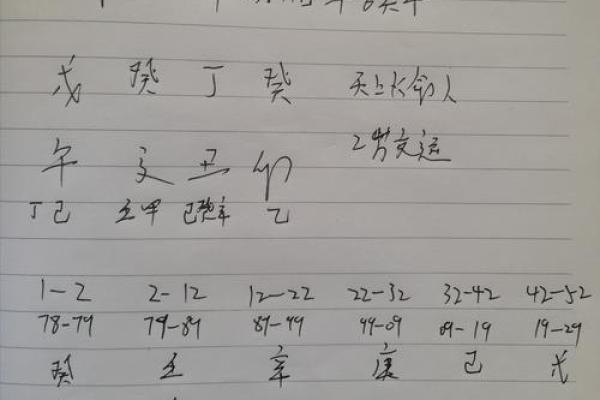 戊 癸 丁 癸 天上火命人
2岁交运
午 亥 丑 卯
丁己 壬甲 己癸辛 乙
1-2 2-12 12-22 22-32 32-42 42-52
78-79 79-89 89-99 99-09 09-19 19-29
癸 壬 辛 庚 己 戊